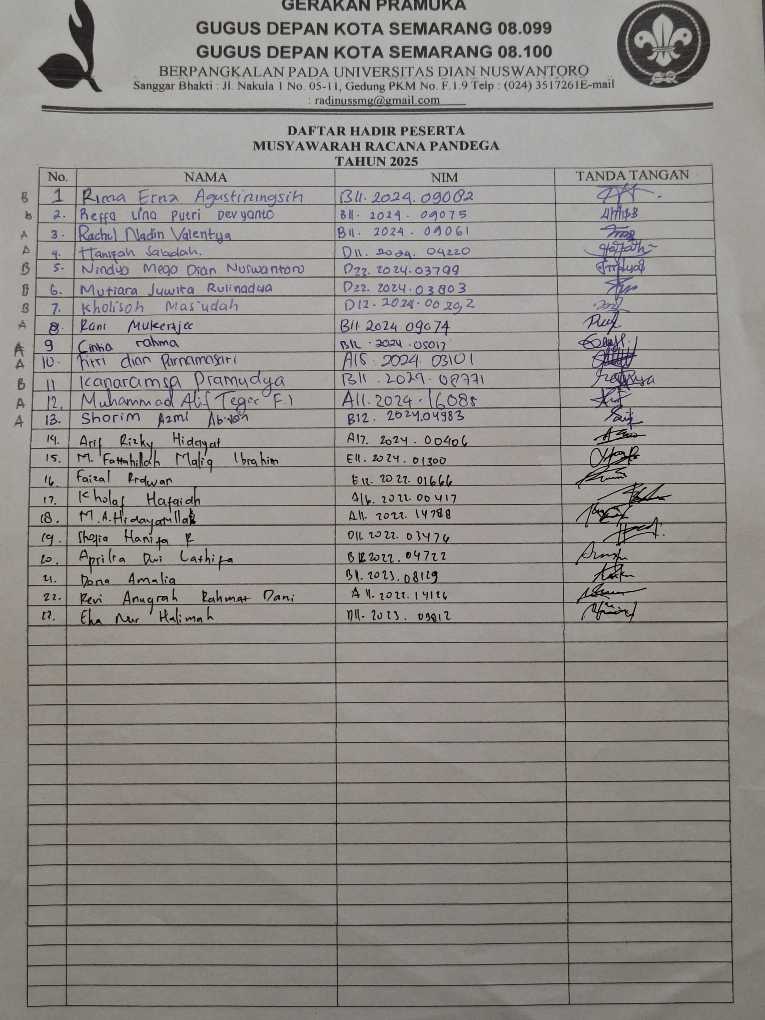 GERAKAN PRAMUKA
GUGUS DEPAN KOTA SEMARANG 08.099
GUGUS DEPAN KOTA SEMARANG 08.100
BERPANGKALAN PADA UNIVERSITAS DIAN NUSWANTORO
Sanggar Bhakti : Jl. Nakula 1 No. 05-11, Gedung PKM No. F.1.9 Telp : (024) 3517261E-mail
: radinussmg@gmail.com
DAFTAR HADIR PESERTA
MUSYAWARAH RACANA PANDEGA
TAHUN 2025
No. NAMA NIM TANDA TANGAN
B 1 Rima Erna Agustiningsih B11.2024.09082
b 2. Reffa Lina Putri Devyanto B11.2024.09075
A 3. Rachel Nadin Valentya B11.2024.09061
A 4. Hanifah Sabilah. D11.2024.04220
B 5. Nindya Mega Dian Nuswantoro D22.2024.03799
B 6. Mutiara Juwita Rulinadya D22.2024.03803
B 7. Kholisoh Mas'udah D12.2024.00202
A 8. Rani Mukerajee B11 2024 09074
A 9 Cintia rahma B12.2024.05017
A 10. Fitri dian Purnamasari A15.2024.03101
B 11 Icanaramsa Pramudya B11.2024.08771
A 12. Muhammad Alif Teger F.I A11.2024.16088
A 13. Shorim Azmi B12.2024.04983
14. Arif Rizky Hidayat A17.2024.00406
15. M. Fattahillah Maliq Ibrahim E11.2024.01300
16. Faizal Ridwan E12.2022.01666
17. Kholaf Hafaidh A16.2022.00417
18. M.A.Hidayatullah A11.2022.14788
19. Shofia Hanifa R D11.2022.03476
20. Aprilia Dwi Lathifa B12.2022.04722
21. Dona Amalia B11.2023.08129
22. Revi Anugrah Rahmat Dani A11.2022.14126
23. Eka Nur Halimah D11.2023.03012